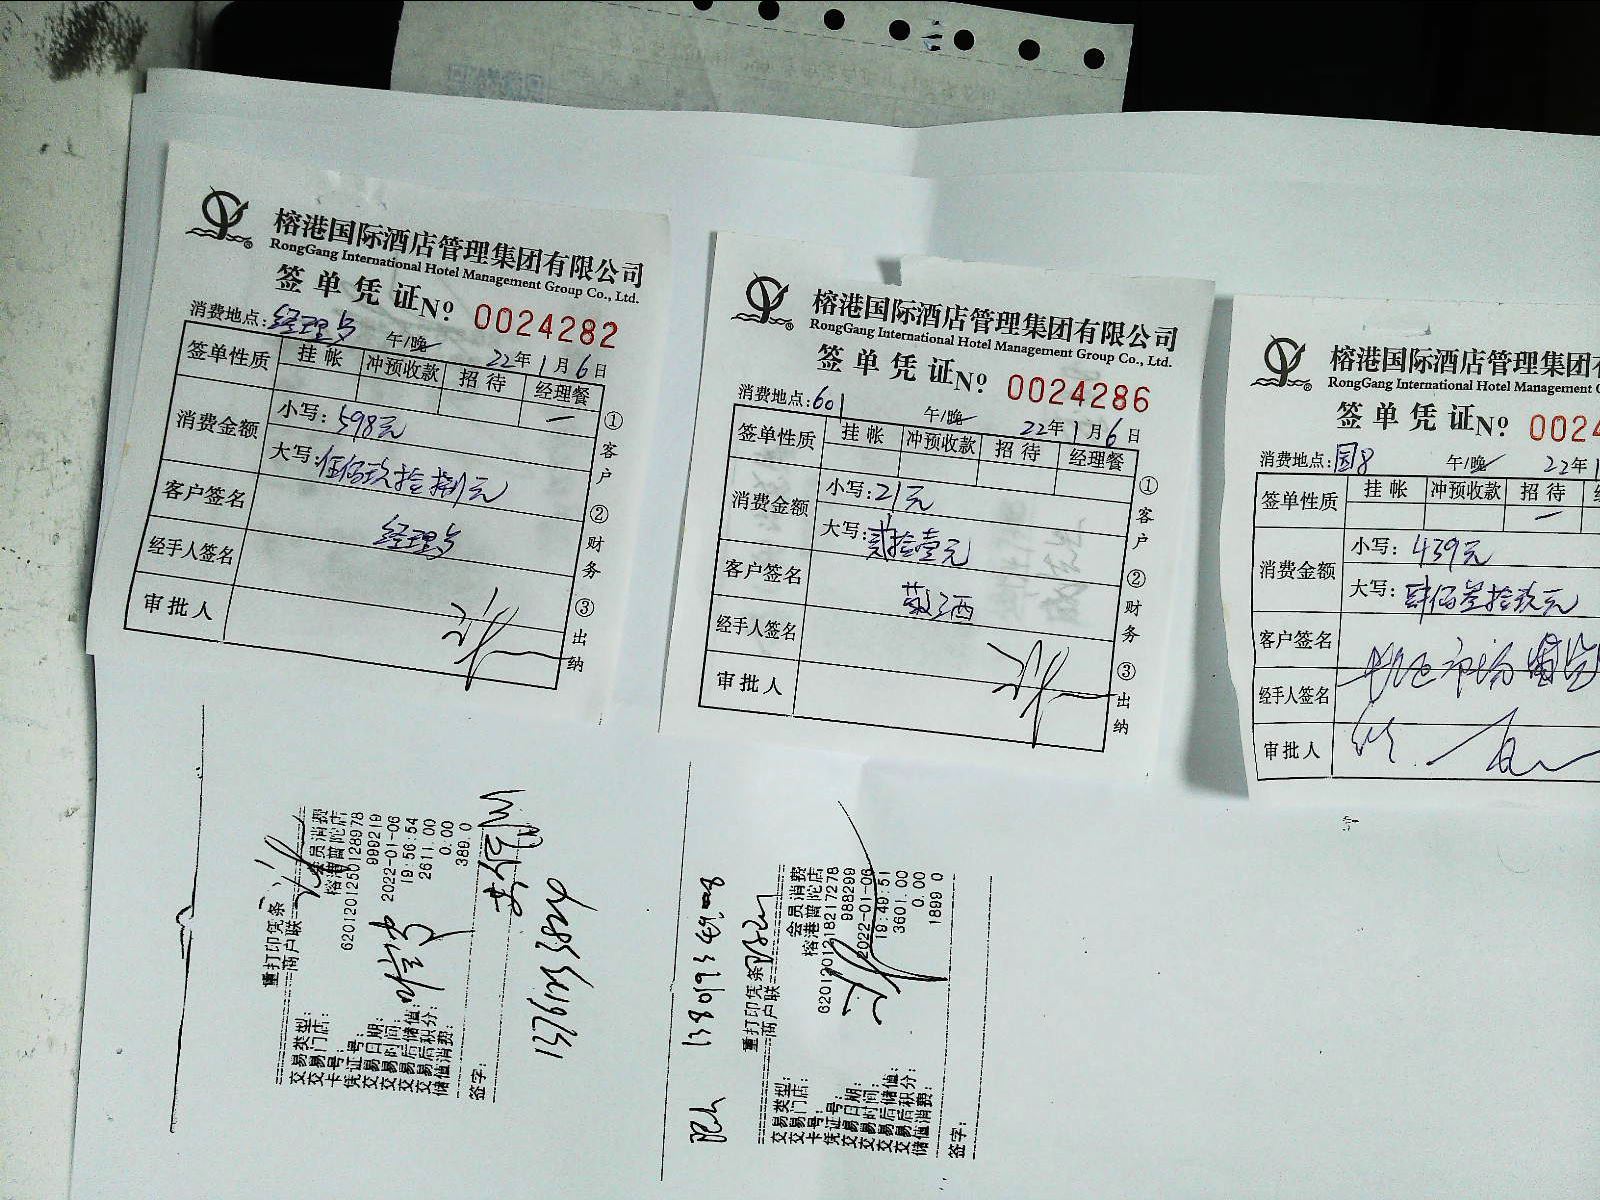 榕港国际酒店管理集团有限公司
RongGang International Hotel Management Group Co., Ltd.
签单凭证 Nº 0024282
消费地点:经理与
午/晚 22年1月6日
签单性质 挂帐 冲预收款 招待 经理餐
一
消费金额 小写:598元
大写:伍佰玖拾捌元
客户签名 经理与
经手人签名
审批人
①客户 ②财务 ③出纳
榕港国际酒店管理集团有限公司
RongGang International Hotel Management Group Co., Ltd.
签单凭证 Nº 0024286
消费地点:601
午/晚 22年1月6日
签单性质 挂帐 冲预收款 招待 经理餐
消费金额 小写:21元
大写:贰拾壹元
客户签名 敬酒
经手人签名
审批人
①客户 ②财务 ③出纳
榕港国际酒店管理集团有
RongGang International Hotel Management G
签单凭证 Nº 0024
消费地点:国8
午/晚 22年1
签单性质 挂帐 冲预收款 招待
一
消费金额 小写:439元
大写:肆佰叁拾玖元
客户签名
经手人签名
审批人
重打印凭条
商户联
交易类型: 会员消费
交易门店: 榕港普陀店
卡号: 6201201250128978
凭证号: 999219
交易日期: 2022-01-06
交易时间: 19:56:54
交易后储值: 2611.00
交易后积分: 0.00
储值消费: 389.0
签字:
重打印凭条
商户联
交易类型: 会员消费
交易门店: 榕港普陀店
卡号: 6201201218217278
凭证号: 988299
交易日期: 2022-01-06
交易时间: 19:49:51
交易后储值: 3601.00
交易后积分: 0.00
储值消费: 1899.0
签字: